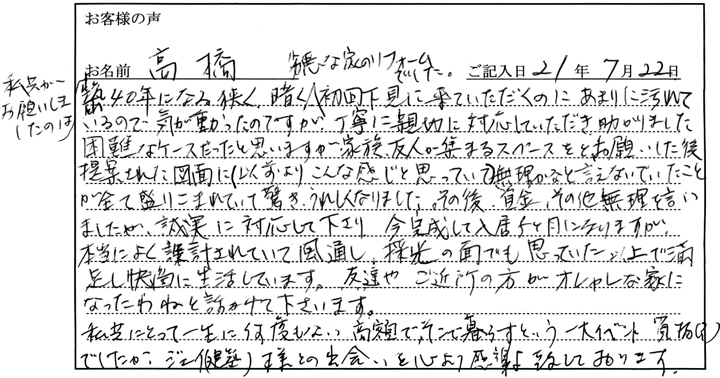 お客様の声
お名前 高橋 ご記入日 21年 7月22日
リフォームでした。
私共が
お願いしま
したのは
築40年になる狭く、暗く、初回下見に来ていただくのに、あまりに汚れて
いるので気が重かったのですが、丁寧に親切に対応していただき助かりました
困難なケースだったと思いますが家族、友人が集まるスペースをとお願いした後
提案された図面に(以前よりこんな感じと思っていて無理かなと言えないでいたこと
が全て盛りこまれていて驚き、うれしくなりました。その後、資金、その他無理を言い
ましたが、誠実に対応して下さり 今完成して入居5ヶ月になりますが、
本当によく設計されていて風通し、採光の面でも思っていた以上で満
足し快適に生活しています。友達や ご近所の方がオシャレな家に
なったわねと話かけて下さいます。
私共にとって一生に何度もない高額で、そこで暮らすという一大イベント
でしたが、ジェイ 様との出会いを心より感謝致しております。